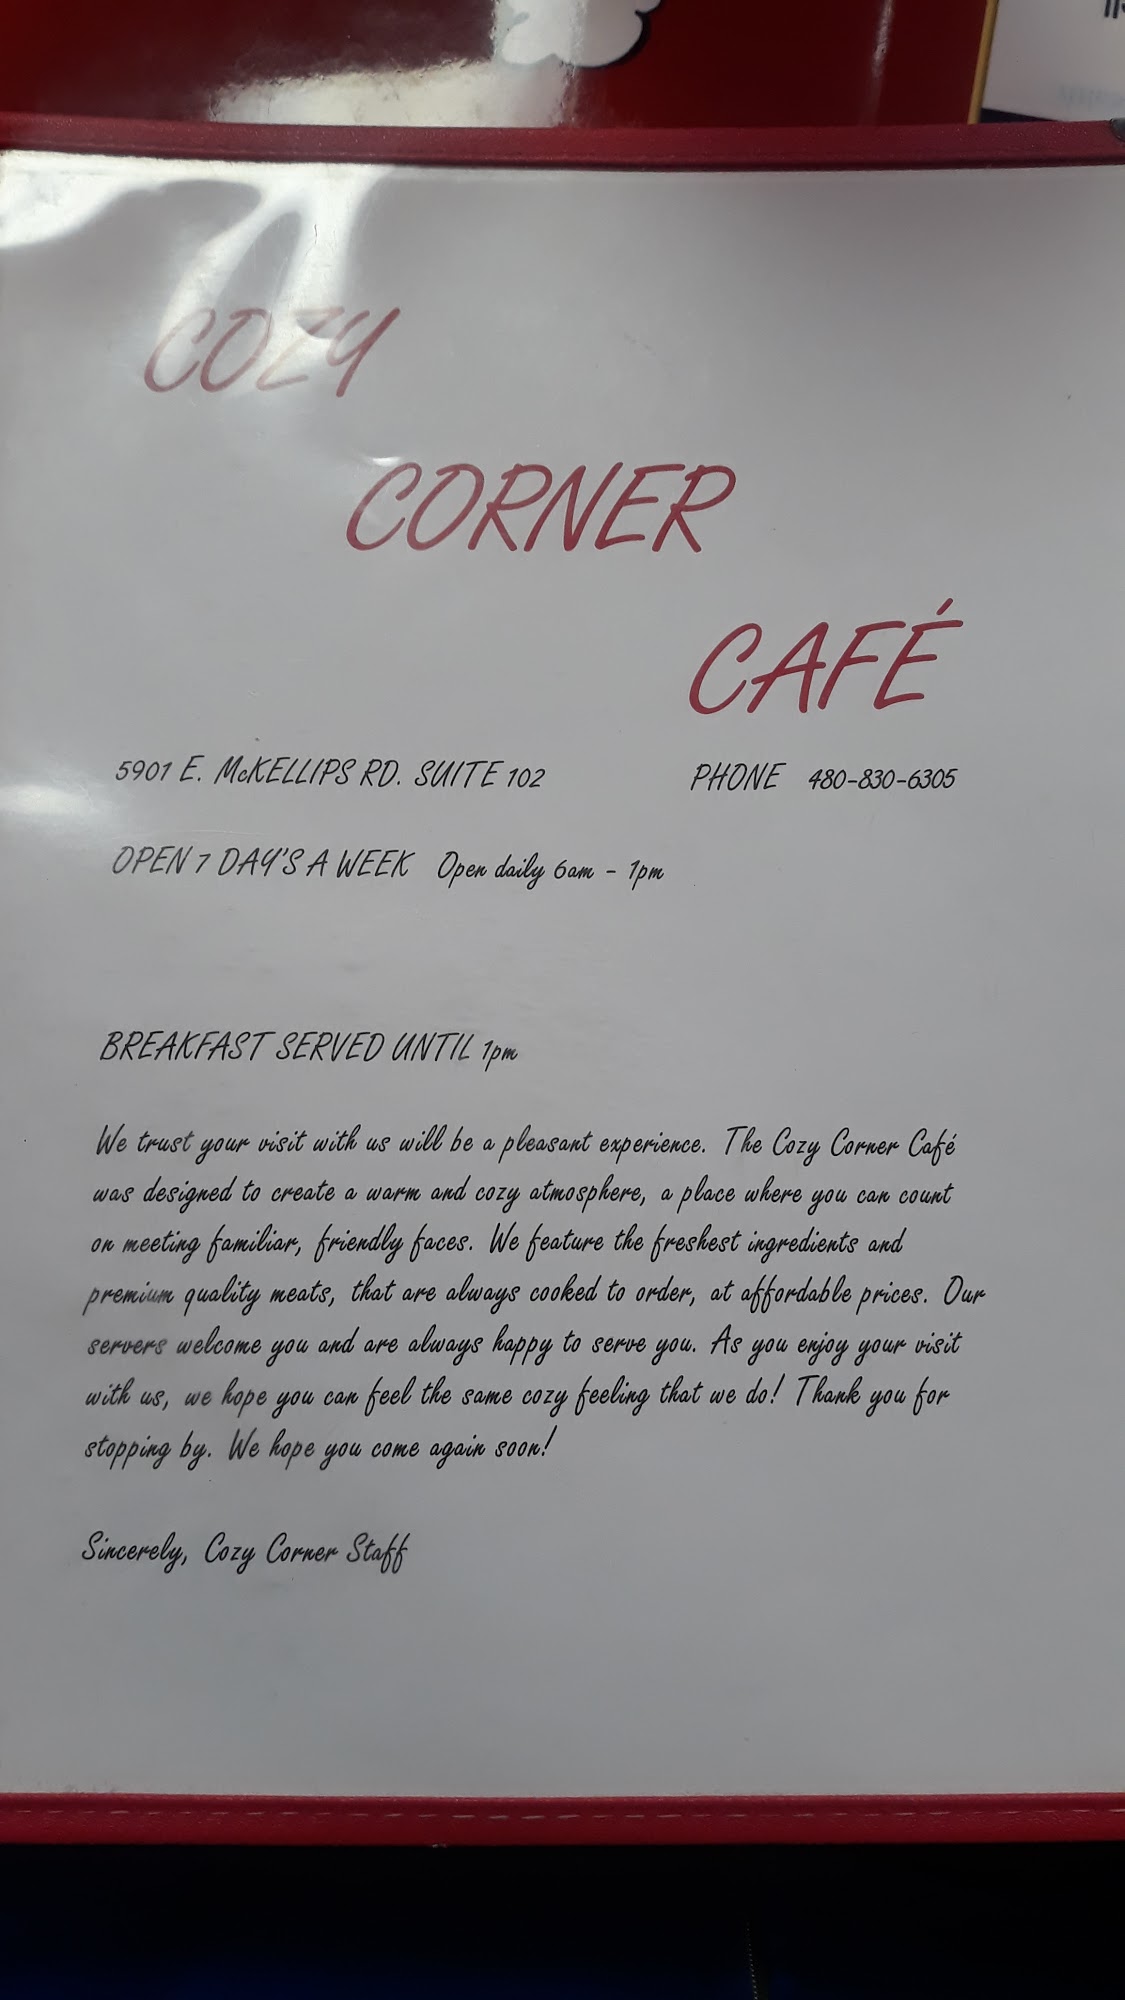 COZY
CORNER
CAFÉ
5901 E. McKELLIPS RD. SUITE 102 PHONE 480-830-6305
OPEN 7 DAY'S A WEEK Open daily 6am - 1pm
BREAKFAST SERVED UNTIL 1pm
We trust your visit with us will be a pleasant experience. The Cozy Corner Café
was designed to create a warm and cozy atmosphere, a place where you can count
on meeting familiar, friendly faces. We feature the freshest ingredients and
premium quality meats, that are always cooked to order, at affordable prices. Our
servers welcome you and are always happy to serve you. As you enjoy your visit
with us, we hope you can feel the same cozy feeling that we do! Thank you for
stopping by. We hope you come again soon!
Sincerely, Cozy Corner Staff